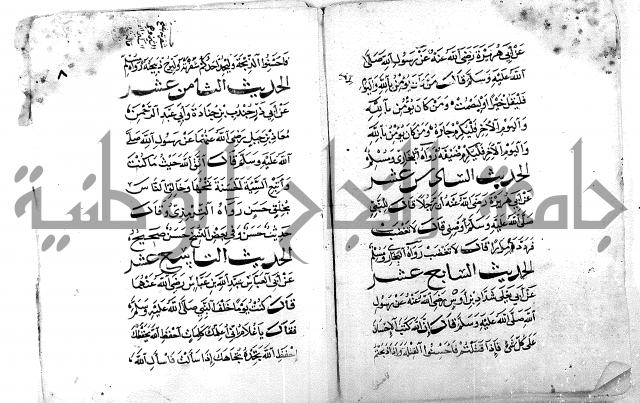 عن أبي هريرة رضي الله عنه عن رسول الله صلى
الله عليه وسلم قال من كان يؤمن بالله واليوم
فليقل خيرا أو ليصمت ومن كان يؤمن بالله
واليوم الآخر فليكرم جاره ومن كان يؤمن بالله
واليوم الآخر فليكرم ضيفه رواه البخاري ومسلم
الحديث السادس عشر
عن أبي هريرة رضي الله عنه أن رجلا قال للنبي
صلى الله عليه وسلم أوصني قال لا تغضب
فردد مرارا قال لا تغضب رواه البخاري ومسلم
الحديث السابع عشر
عن أبي يعلى شداد بن أوس رضي الله عنه عن رسول
الله صلى الله عليه وسلم قال إن الله كتب الإحسان
على كل شيء فإذا قتلتم فأحسنوا القتلة وإذا ذبحتم
فأحسنوا الذبحة وليحد أحدكم شفرته وليرح ذبيحته رواه مسلم
الحديث الثامن عشر
عن أبي ذر جندب بن جنادة وأبي عبد الرحمن
معاذ بن جبل رضي الله عنهما عن رسول الله صلى
الله عليه وسلم قال اتق الله حيث ما كنت
وأتبع السيئة الحسنة تمحها وخالق الناس
بخلق حسن رواه الترمذي وقال
حديث حسن وفي بعض النسخ حسن صحيح
الحديث التاسع عشر
عن أبي العباس عبد الله بن عباس رضي الله عنهما
قال كنت يوما خلف النبي صلى الله عليه وسلم
فقال يا غلام إني أعلمك كلمات احفظ الله يحفظك
احفظ الله تجده تجاهك إذا سألت فاسأل الله
جامعة النجاح الوطنية
٨